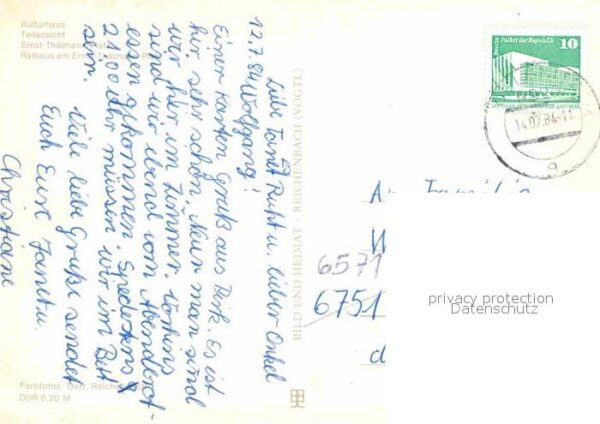 Kulturhaus
Teilansicht
Ernst-Thälmann-Platz
Rathaus am Ernst-Thälmann-Platz
12.7.84
Liebe Tante Ruth u. lieber Onkel
Wolfgang!
Einen Karten Gruß aus Berk. Es ist
hier sehr schön. Neun man sind
wir hier im Zimmer.
sind wir eben vom Abendbrot-
essen gekommen. Spätestens
21 00 Uhr müssen wir im Bett
sein.
Viele liebe Grüße sendet
Euch Eure Janet u.
Christiane
BILD UND HEIMAT · REICHENBACH (VOGTL)
Farbfotos: Darr, Reichenbach
DDR 0,20 M
Berlin, Palast der Republik
10
14.07.84-11
a
An Familie
W
6571
6751
d
privacy protection
Datenschutz